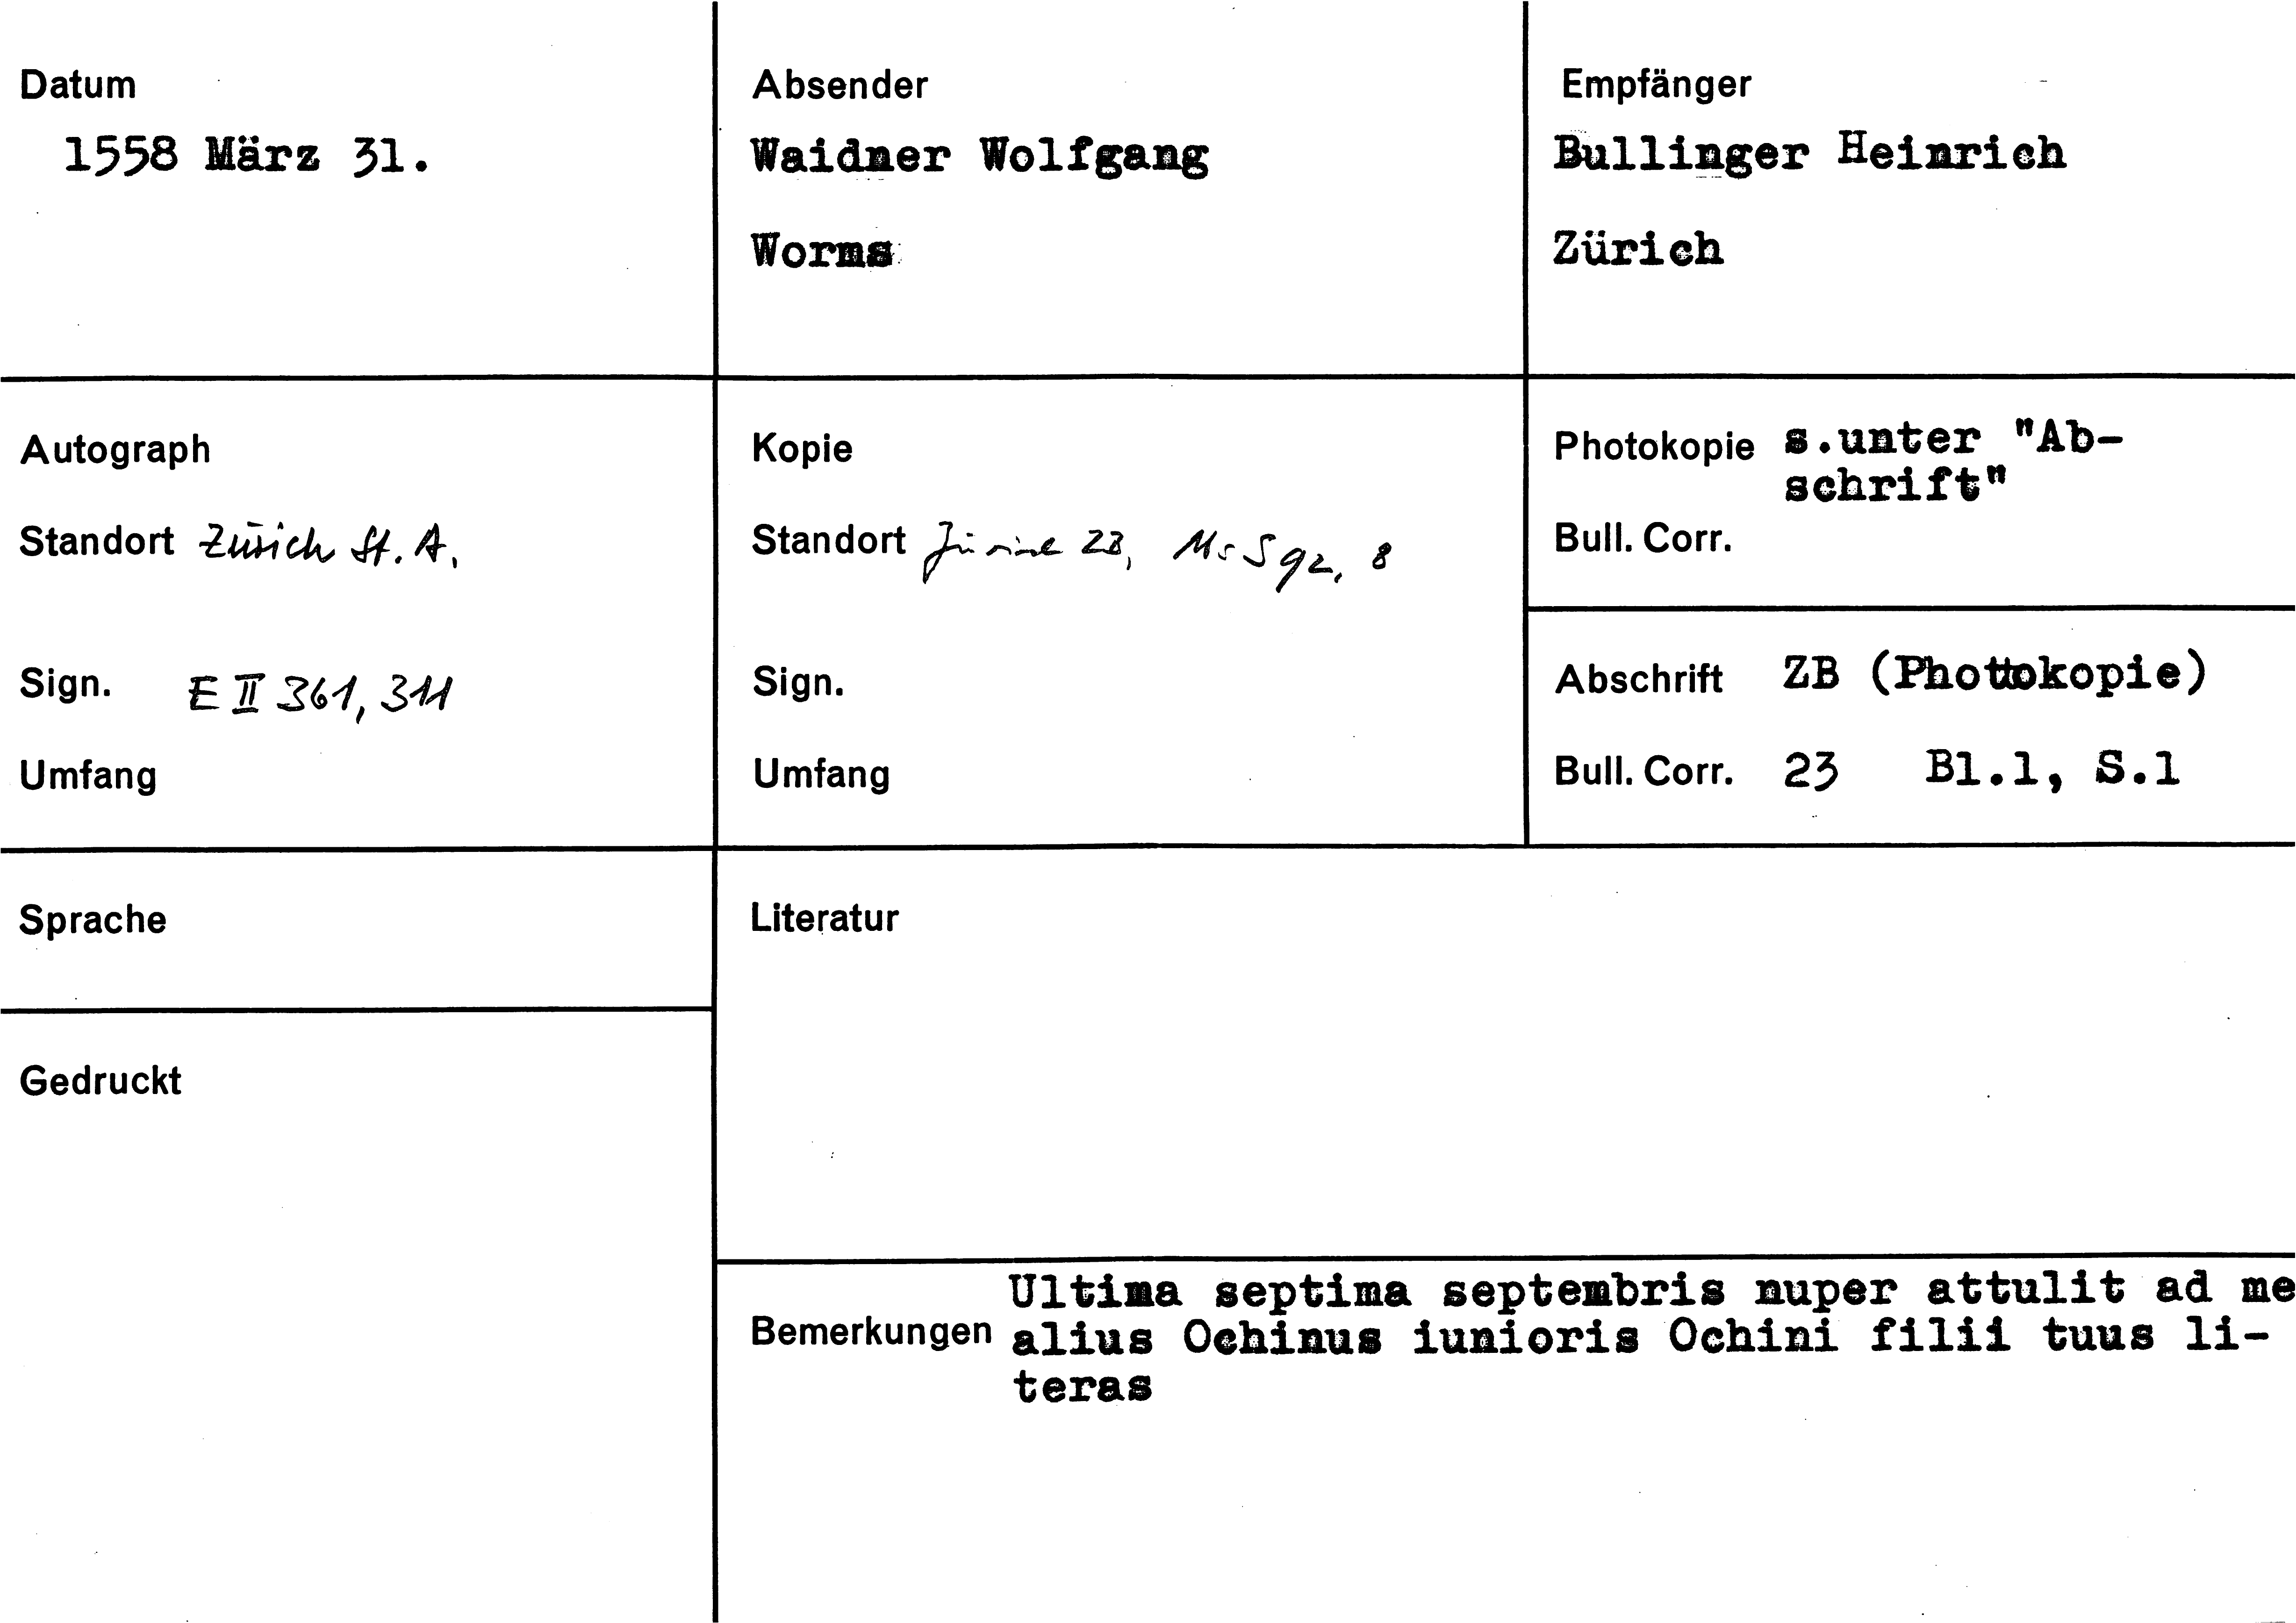 Datum
1558 März 31.
Absender
Waidner Wolfgang
Worms
Empfänger
Bullinger Heinrich
Zürich
Autograph
Standort Zürich St. A.
Sign. E II 361, 311
Umfang
Kopie
Standort Zürich ZB, Ms S 92, 8
Sign.
Umfang
Photokopie s.unter "Ab-
schrift"
Bull. Corr.
Abschrift ZB (Photokopie)
Bull. Corr. 23 Bl.1, S.1
Sprache
Gedruckt
Literatur
Bemerkungen
Ultima septima septembris nuper attulit ad me
alius Ochinus iunioris Ochini filii tuus li-
teras